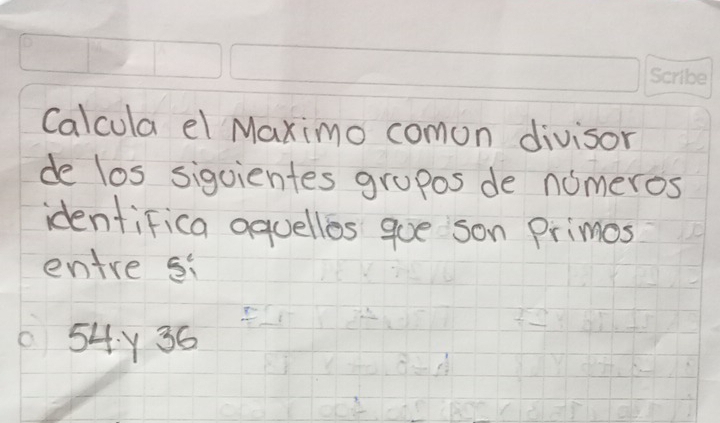 Scribe
Calcula el Maximo comun divisor
de los siguientes grupos de números
identifica aquellos que son Primos
entre sí
a) 54 y 36